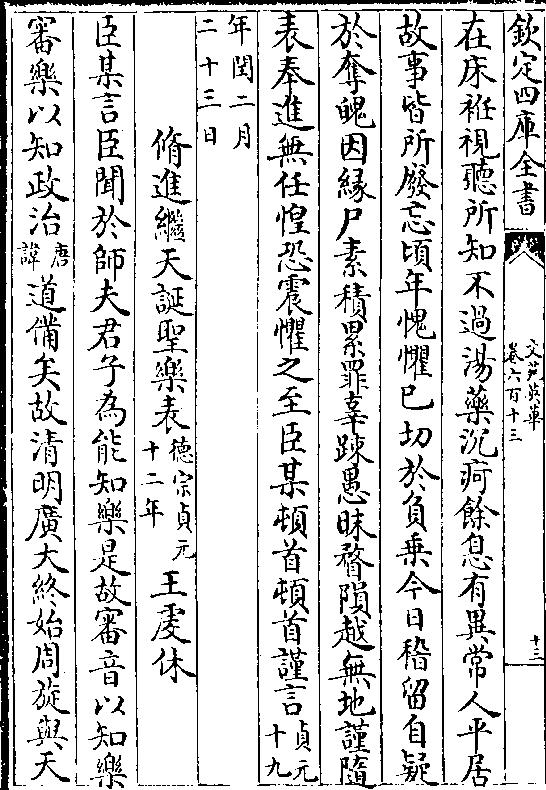 欽定四庫全書
文苑英華
卷六百十三
十三
在床袵視聽所知不過湯藥沉疴餘息有異常人平居
故事皆所廢忘頃年愧懼已切於負乗今日稽留自疑
於奪魄因縁尸素積累罪辜踈愚昧瞀隕越無地謹隨
表奉進無任惶恐震懼之至臣某頓首頓首謹言貞元十九
年閏二月二十三日
脩進繼天誕聖樂表德宗貞元十二年 王虔休
臣某言臣聞於師夫君子為能知樂是故審音以知樂
審樂以知政治唐諱道備矣故清明廣大終始周旋與天